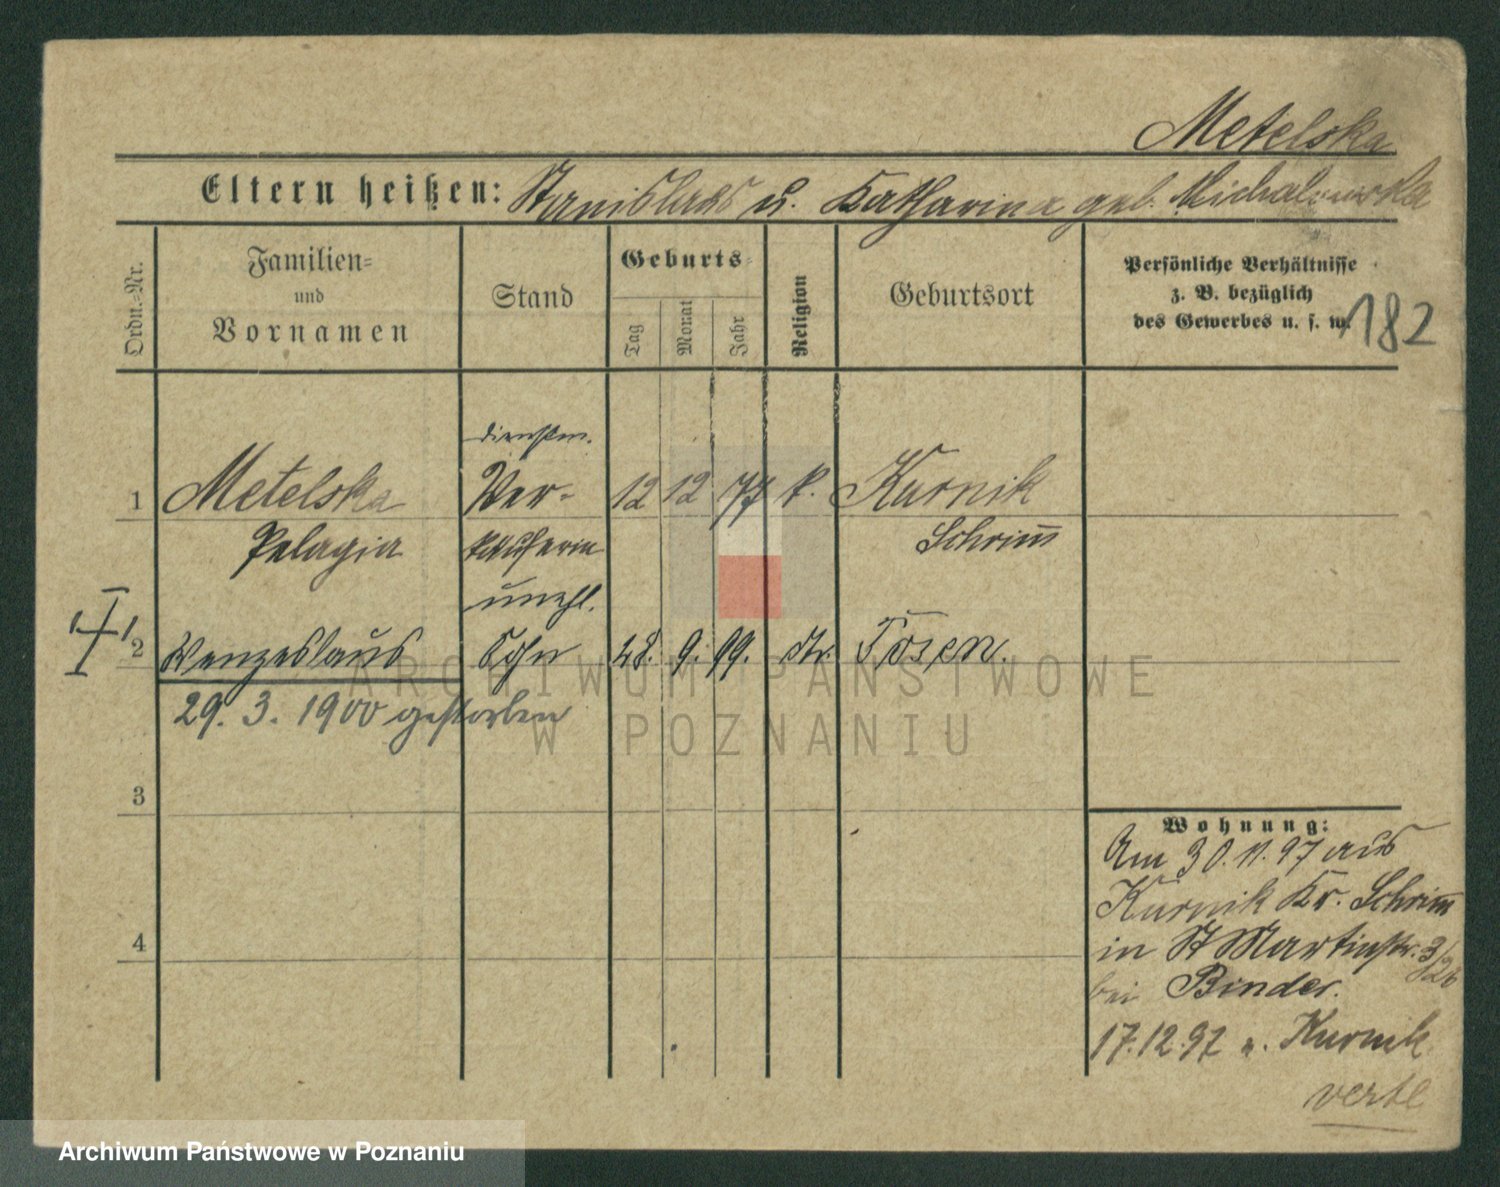 Metelska
Eltern heißen: Stanislaus u. Katharina geb. Michalowska
Ordn.-Nr.
Familien-
und
Vornamen
Stand
Geburts-
Tag
Monat
Jahr
Religion
Geburtsort
Persönliche Verhältnisse
z. B. bezüglich
des Gewerbes u. s. w.
182
dienstm.
1 Metelska Ver- 12 12 77 k. Kurnik
Pelagia käuferin Schrimm
unehl.
2 Wenzeslaus Sohn 28. 9. 99. dto. Posen.
29. 3. 1900 gestorben
3
4
Wohnung:
Am 30. 11. 97 aus
Kurnik Kr. Schrimm
in St Martinstr. 3/26
bei Binder.
17.12.97 n. Kurnik
verte
ARCHIWUM PAŃSTWOWE
W POZNANIU
Archiwum Państwowe w Poznaniu